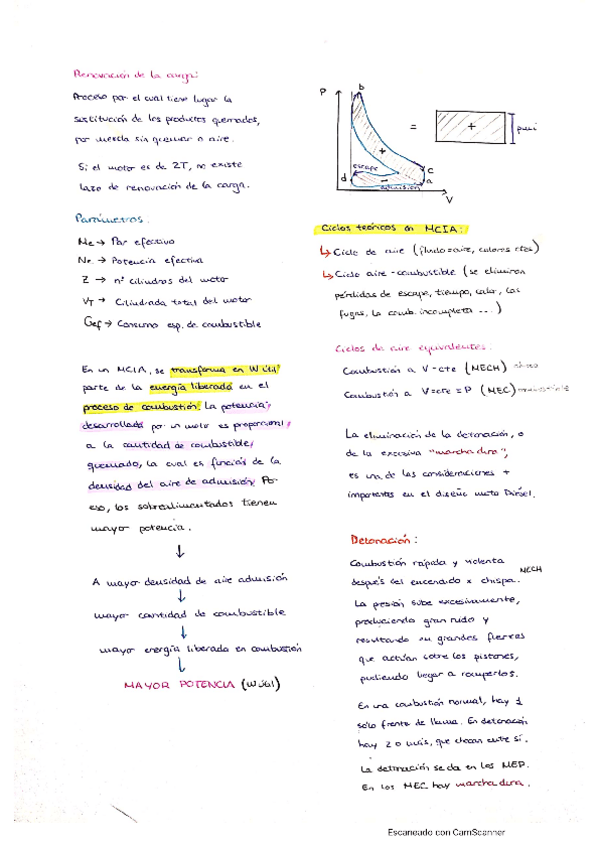 Renovación de la carga:
Proceso por el cual tiene lugar la
sustitución de los productos quemados,
por mezcla sin quemar o aire.
Si el motor es de 2T, no existe
lazo de renovación de la carga.
Parámetros.
Me → Par efectivo
Ne → Potencia efectiva
Z → nº cilindros del motor
VT → Cilindrada total del motor
Gef → Consumo esp. de combustible
En un MCIA, se transforma en W útil
parte de la energía liberada en el
proceso de combustión. La potencia
desarrollada por un motor es proporcional
a la cantidad de combustible
quemado, la cual es función de la
densidad del aire de admisión. Por
eso, los sobrealimentados tienen
mayor potencia.
↓
A mayor densidad de aire admisión
↓
mayor cantidad de combustible
↓
mayor energía liberada en combustión
↓
MAYOR POTENCIA (W útil)
P
b
+
escape
d
-
c
a
admisión
V
=
+
pmi
Ciclos teóricos en MCIA:
↳ Ciclo de aire (fluido=aire, calores ctes)
↳ Ciclo aire-combustible (se eliminan
pérdidas de escape, tiempo, calor, las
fugas, la comb. incompleta ...)
Ciclos de aire equivalentes.
Combustión a V=cte (MECH)
Combustión a V=cte = P (MEC)
La eliminación de la detonación, o
de la excesiva "marcha dura",
es una de las consideraciones +
importantes en el diseño moto Diésel.
Detonación:
Combustión rápida y violenta
después del encendido x chispa. MECH
La presión sube excesivamente,
produciendo gran ruido y
resultando en grandes fuerzas
que actúan sobre los pistones,
pudiendo llegar a romperlos.
En una combustión normal, hay 1
solo frente de llama. En detonación
hay 2 o más, que chocan entre sí.
La detonación se da en los MEP.
En los MEC hay marcha dura.
Escaneado con CamScanner